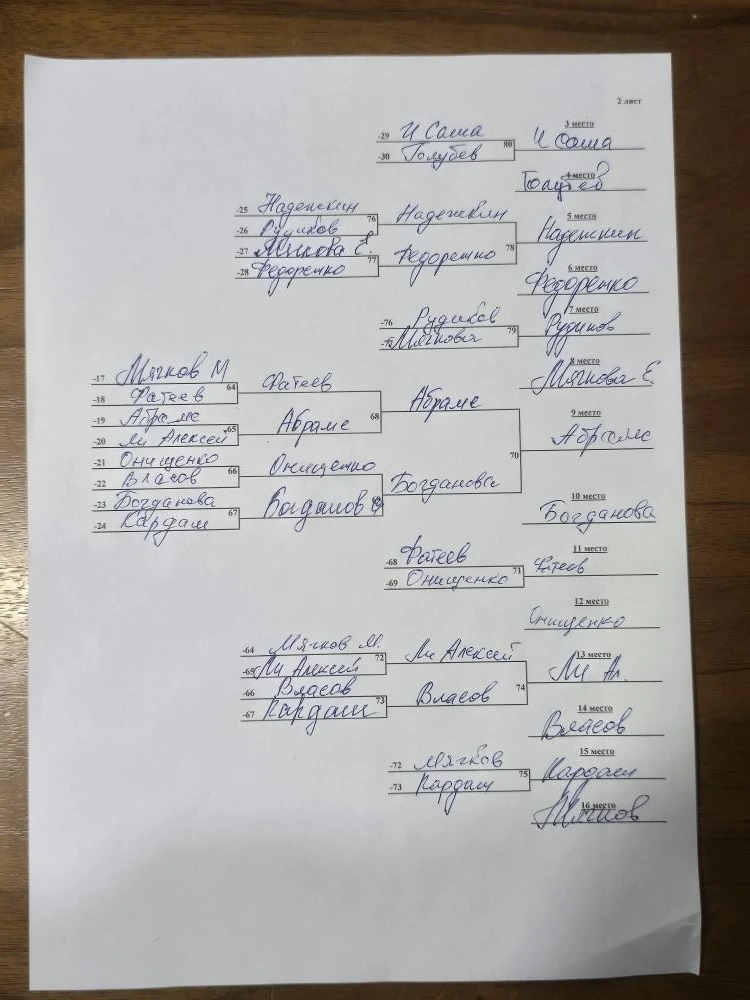 2 лист
3 место
-29 И Саша
80
И Саша
-30 Голубев
4 место
Голубев
-25 Надежкин
76
Надежкин
5 место
-26 Рудиков
Надежкин
-27 Мягкова Е.
77
78
-28 Федоренко
Федоренко
6 место
Федоренко
7 место
-76 Рудиков
79
Рудиков
Мягкова
8 место
Мягкова Е
-17 Мягков М
64
Фатеев
-18 Фатеев
-19 Абрамс
65
68
Абрамс
9 место
-20 Ли Алексей
Абрамс
Абрамс
70
-21 Онищенко
66
Онищенко
-22 Власов
Богданова
10 место
-23 Богданова
67
Богданова
Богданова
-24 Кардаш
11 место
-68 Фатеев
71
Фатеев
-69 Онищенко
12 место
Онищенко
-64 Мягков М.
72
Ли Алексей
13 место
-65 Ли Алексей
Ли Ал.
-66 Власов
73
Власов
74
-67 Кардаш
14 место
Власов
15 место
-72 Мягков
75
Кардаш
-73 Кардаш
16 место
Мягков